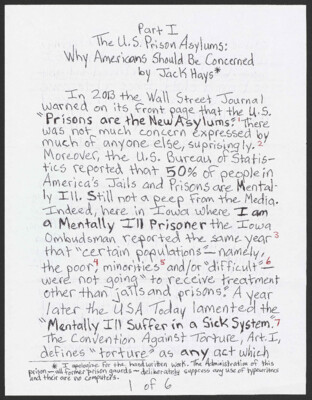 Part I
The U.S. Prison Asylums:
Why Americans Should Be Concerned
by Jack Hays*
In 2013 the Wall Street Journal
warned on its front page that the U.S.
"Prisons are the New Asylums." There
was not much concern expressed by
much of anyone else, suprisingly.2
Moreover, the U.S. Bureau of Statis-
tics reported that 50% of people in
America's Jails and Prisons are Mental-
ly Ill. Still not a peep from the Media.
Indeed, here in Iowa where I am
a Mentally Ill Prisoner the Iowa
Ombudsman reported the same year3
that "certain populations—namely,
the poor,4 minorities5 and/or "difficult"6—
were not going" to receive treatment
other than jails and prisons." A year
later the USA Today lamented the
"Mentally Ill Suffer in a Sick System."7
The Convention Against Torture, Art.I,
defines "torture" as any act which
* I apologize for the handwritten work. The Administration of this
prison—all former prison guards—deliberately suppress any use of typewriters
and there are no computers.
1 of 6